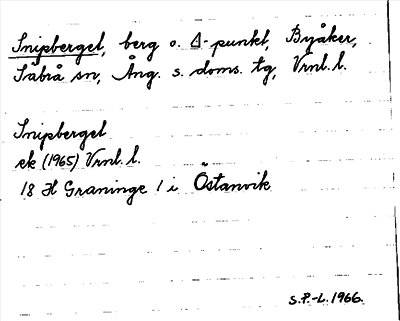 Snipberget, berg o. Δ-punkt, Byåker,
Säbrå sn, Ång. s. doms. tg, Vrnl. l.
Snipberget
ek (1965) Vrnl. l.
18 H Graninge 1 i Östanvik
S.P.-L. 1966.